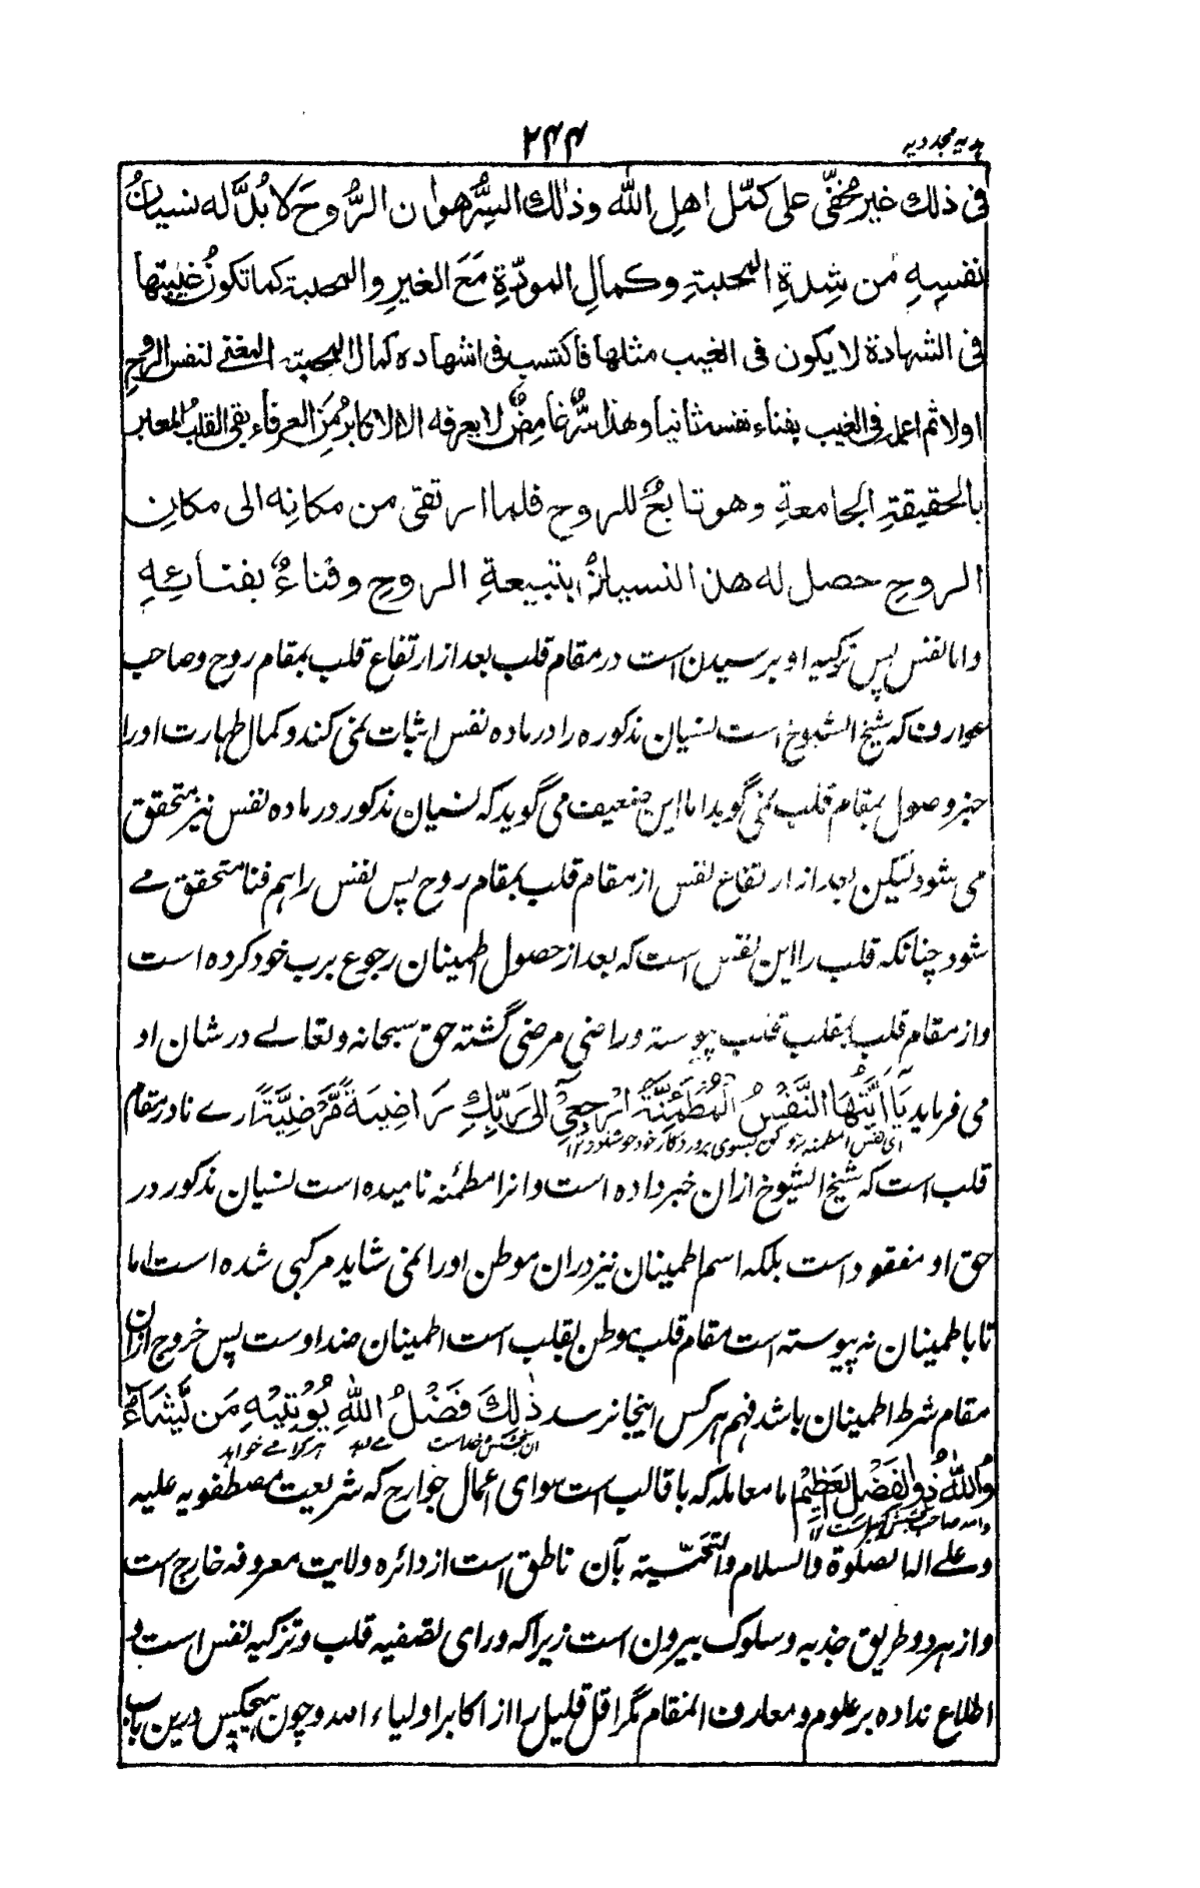 ہدیہ مجددیہ
۲۴۴
فی ذلك غیر مُخفّی علی كمّل اهلِ الله وذٰلك السِّرُّ هوان الرُّوحَ لا بُدَّ له نسیانُ
نفسِہٖ من شدةِ المحبةِ وكمالِ المودّةِ مَعَ الغیرِ والمحبة كما تكونُ غیبتها
فی الشهادة لا یكون فی الغیب مثلها فاكتسب فی اشهاده كمال المحبة المغنی لنفس الروحِ
اولا ثم اعمل فی الغیب بفناء نفسه ثانیا وهذا سرٌّ غامِضٌ لا یعرفه الا الاكابرُ مِنَ العرفاء بقی القلبُ المعبر
بالحقیقةِ الجامعةِ وهو تابعٌ للروح فلما ارتقی من مكانِه الی مكانِ
الروحِ حصل له هذا النسیانُ بتبیعةِ الروحِ وفناءٌ بفنائِهِ
واما نفس پس تزکیہ او برسیدن است در مقام قلب بعد از ارتفاع قلب بمقام روح و صاحب
عوارف کہ شیخ الشیوخ است نسیان مذکورہ را در مادہ نفس اثبات نمی کند و کمال طہارت او را
جز وصول بمقام قلب نمی گوید اما این ضعیف می گوید کہ نسیان مذکور در مادہ نفس نیز متحقق
می شود لیکن بعد از ارتفاع نفس از مقام قلب بمقام روح پس نفس را ہم فنا متحقق مے
شود چنانکہ قلب را این نفس است کہ بعد از حصول اطمینان رجوع برب خود کردہ است
واز مقام قلب بقلب قلب پیوستہ و راضی مرضی گشتہ حق سبحانہ و تعالے در شان او
می فرماید یَآ اَیَّتُهَا النَّفْسُ الْمُطْمَئِنَّةُ ارْجِعِیْٓ اِلٰی رَبِّكِ رَاضِیَةً مَّرْضِیَّةً ارے تا در مقام
ای نفس مطمئنہ رجوع کن بسوی پروردگار خود خوشنود ۱۲
قلب است کہ شیخ الشیوخ ازان خبر دادہ است و انرا مطمئنہ نامیدہ است نسیان مذکور در
حق او مفقود است بلکہ اسم اطمینان نیز دران موطن او را نمی شاید مرکبی شدہ است اما
تا باطمینان نہ پیوستہ است مقام قلب موطن تقلب است اطمینان ضد اوست پس خروج ازان
مقام شرط اطمینان باشد فہم ہر کس اینجا نرسد ذٰلِكَ فَضْلُ اللّٰهِ یُؤْتِیْهِ مَن یَّشَآءُ
ان بخشش خداست مے دہد ہر کرا مے خواہد
وَاللّٰهُ ذُو الْفَضْلِ الْعَظِیْمِ اما معاملہ کہ با قالب است سوای اعمال جوارح کہ شریعت مصطفویہ علیہ
واللہ صاحب بخشش بزرگ است ۱۲
و علے الہا الصلوۃ والسلام والتحیۃ بآن ناطق است از دائرہ ولایت معروفہ خارج است
واز ہر دو طریق جذبہ و سلوک بیرون است زیرا کہ ورای تصفیہ قلب و تزکیہ نفس است و
اطلاع ندادہ بر علوم و معارف المنقام مگر اقل قلیل را از اکابر اولیاء اللہ و چون ہیچکس درین باب